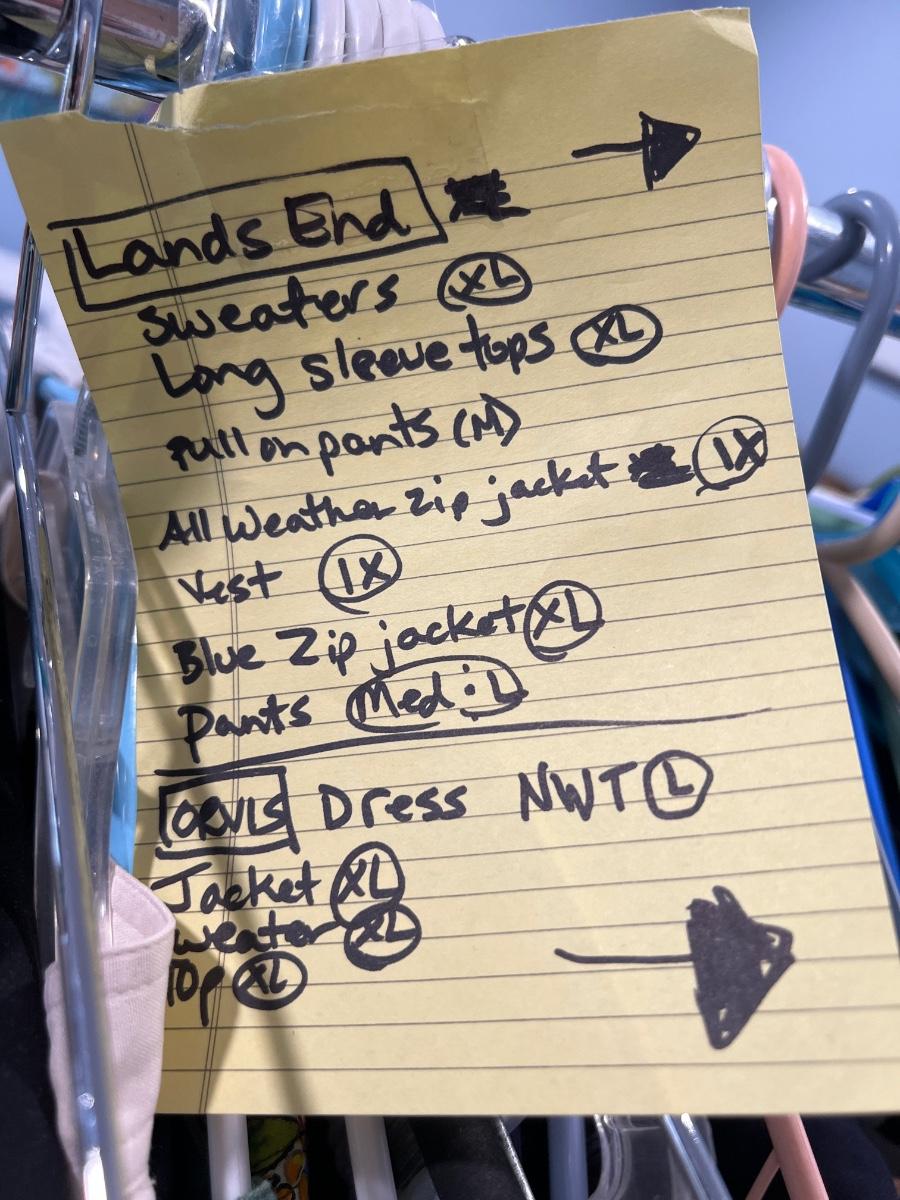 Lands End
Sweaters XL
Long sleeve tops XL
Pull on pants (M)
All Weather Zip jacket 1X
Vest 1X
Blue Zip jacket XL
Pants Med - L
ORVIS Dress NWT L
Jacket XL
weater XL
Top XL